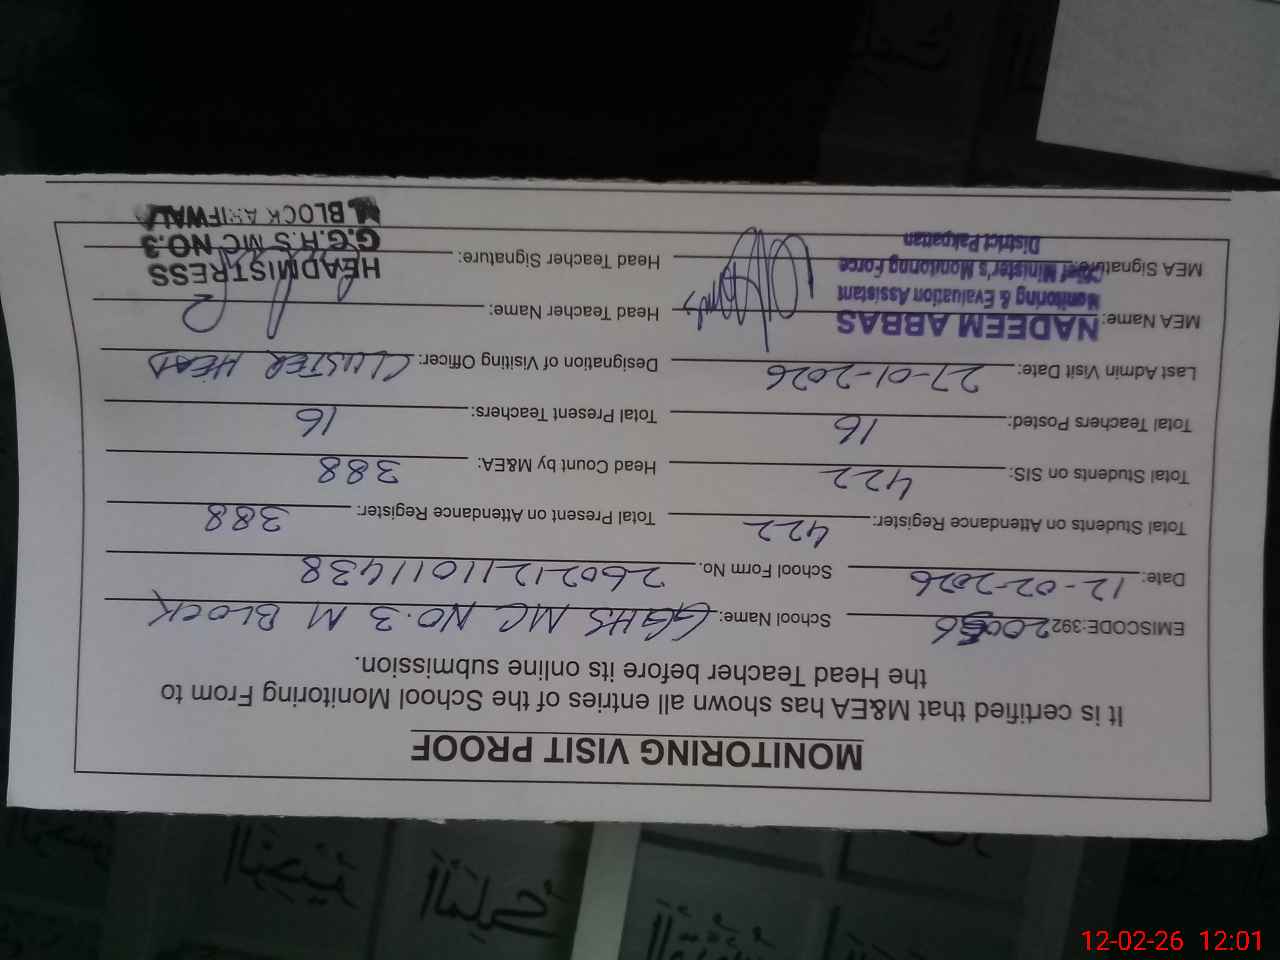 MONITORING VISIT PROOF
It is certified that M&EA has shown all entries of the School Monitoring From to
the Head Teacher before its online submission.
EMISCODE:392 School Name: GGHS MC NO.3 M BLOCK
Date: 12-02-2026 School Form No. 26021211011438
Total Students on Attendance Register: 422 Total Present on Attendance Register: 388
Total Students on SIS: 422 Head Count by M&EA: 388
Total Teachers Posted: 16 Total Present Teachers: 16
Last Admin Visit Date: 27-01-2026 Designation of Visiting Officer: CLUSTER HEAD
MEA Name: NADEEM ABBAS Head Teacher Name:
Monitoring & Evaluation Assistant
MEA Signature: Chief Minister's Monitoring Force Head Teacher Signature: HEADMISTRESS
District Pakpattan G.G.H.S MC NO.3
M. BLOCK ARIFWALA
12-02-26 12:01